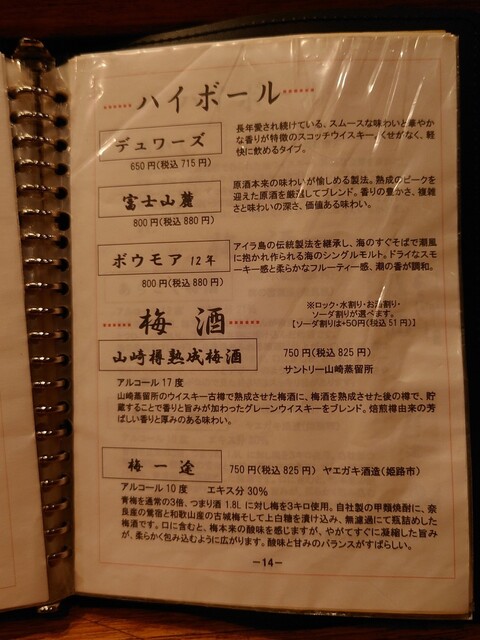 ハイボール
デュワーズ
650円(税込715円)
長年愛され続けている、スムースな味わいと華やか
な香りが特徴のスコッチウイスキー。くせがなく、軽
快に飲めるタイプ。
富士山麓
800円(税込880円)
原酒本来の味わいが愉しめる製法。熟成のピークを
迎えた原酒を厳選してブレンド。香りの豊かさ、複雑
さと味わいの深さ、価値ある味わい。
ボウモア 12年
800円(税込880円)
アイラ島の伝統製法を継承し、海のすぐそばで潮風
に抱かれ作られる海のシングルモルト。ドライなスモ
ーキー感と柔らかなフルーティー感、潮の香が調和。
梅酒
※ロック・水割り・お湯割り・
ソーダ割りが選べます。
【ソーダ割りは+50円(税込51円)】
山崎樽熟成梅酒
750円(税込825円)
サントリー山崎蒸留所
アルコール17度
山崎蒸留所のウイスキー古樽で熟成させた梅酒に、梅酒を熟成させた後の樽で、貯
蔵することで香りと旨みが加わったグレーンウイスキーをブレンド。焙煎樽由来の芳
ばしい香りと厚みのある味わい。
梅一途
750円(税込825円) ヤエガキ酒造(姫路市)
アルコール10度 エキス分30%
青梅を通常の3倍、つまり酒1.8Lに対し梅を3キロ使用。自社製の甲類焼酎に、奈
良産の鶯宿と和歌山産の古城梅そして上白糖を漬け込み、無濾過にて瓶詰めした
梅酒です。口に含むと、梅本来の酸味を感じますが、やがてすぐに凝縮した旨み
が、柔らかく包み込むように広がります。酸味と甘みのバランスがすばらしい。
-14-